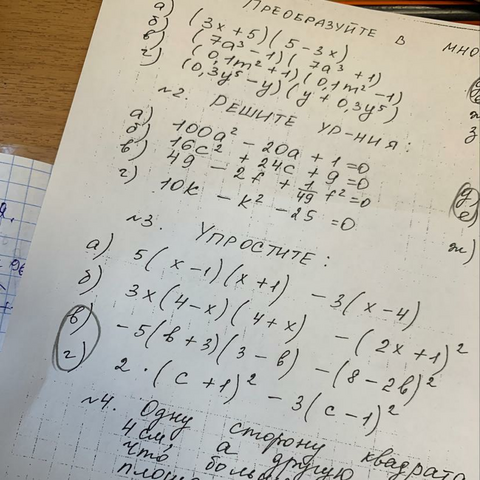 ПРЕОБРАЗУЙТЕ В МНО
а) (3x + 5)(5 - 3x)
б) (7a³ - 1)(7a³ + 1)
в) (0,1m² + 1)(0,1m² - 1)
г) (0,3y⁵ - y)(y + 0,3y⁵)
№2. РЕШИТЕ УР-НИЯ:
а) 100a² - 20a + 1 = 0
б) 16c² + 24c + 9 = 0
в) 49 - 2f + 1/49 f² = 0
г) 10k - k² - 25 = 0
№3. УПРОСТИТЕ:
а) 5(x - 1)(x + 1) - 3(x - 4)
б) 3x(4 - x)(4 + x) - (2x + 1)²
в) -5(b + 3)(3 - b) - (8 - 2b)²
г) 2 · (c + 1)² - 3(c - 1)²
№4. Одну сторону квадрата
4 см, а другую
что боль
площа
ж)
з
д)
е)
ж)